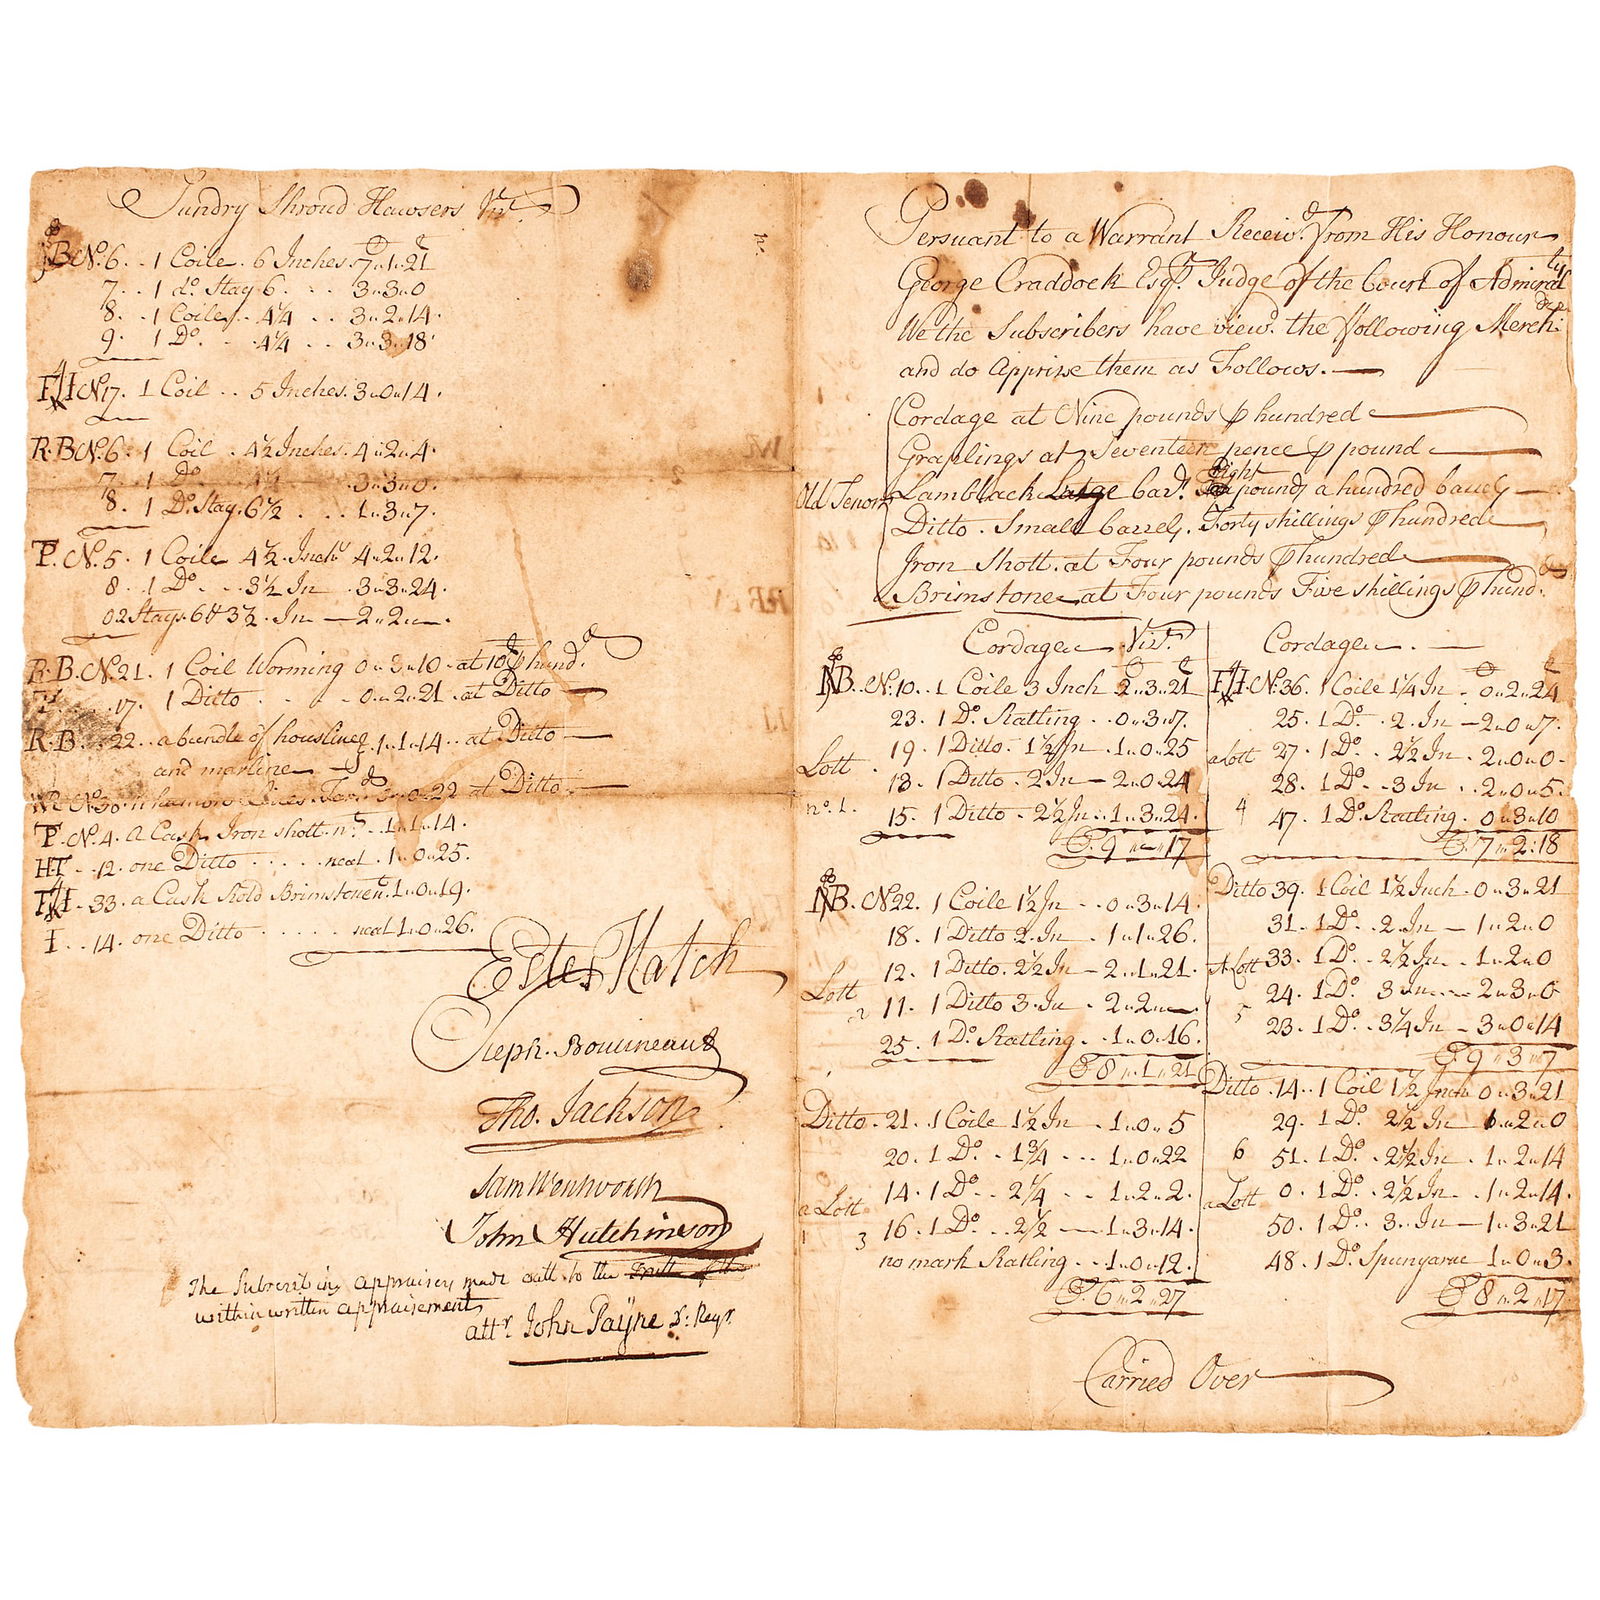 Sundry Shroud Hawsers Vizt.
B No. 6 . . 1 Coile . 6 Inches . 7 " 1 " 21
7 . . 1 do. Stay 6 . . . 3 " 3 " 0
8 . . 1 Coile . . 4¼ . . 3 " 2 " 14 .
9 . 1 Do. . . 4¼ . . 3 " 3 " 18
FH No. 17 . 1 Coil . . 5 Inches . 3 " 0 " 14 .
R. B No. 6 . 1 Coil . 4½ Inches . 4 " 2 " 4 .
7 . 1 Do. 4½ . 3 " 3 " 0 .
8 . 1 Do. Stay . 6½ . . . 1 " 3 " 7 .
T. No. 5 . 1 Coile 4½ . Inchs 4 " 2 " 12 .
8 . . 1 Do. . . 3½ In . 3 " 3 " 24 .
0 2 Stays . 6 & 3½ . In — 2 " 2 " — .
R. B. No. 21 . 1 Coil Worming 0 " 3 " 10 . at 10£ ⅌ hundd.
17 . 1 Ditto . . . 0 " 2 " 21 . at Ditto —
R. B . . 22 . . a bundle of housline 1 " 1 " 14 . . at Ditto —
and marline
No. 30 . 11 hambro Lines 3 " 0 " 22 at Ditto . —
T. No. 4 . a Cask Iron shott . nt. . . 1 " 1 " 14 .
HT . . 12 . one Ditto . . . . . neat . 1 " 0 " 25 .
FH . 33 . a Cask Rold Brimstone nt. 1 " 0 " 19 .
I . . 14 . one Ditto . . . . . neat 1 " 0 " 26 .
Estes Hatch
Steph. Boutineau
Tho. Jackson
Sam Wentworth
John Hutchinson
The Subscribing appraisers made oath to the truth of the
within written appraisement
attr. John Payne D: Regr.
Persuant to a Warrant Receivd. from His Honour
George Craddock Esqr. Judge of the Court of Admiralty
We the Subscribers have viewd. the following Merchdze
and do Apprise them as Follows . —
Cordage at Nine pounds ⅌ hundred
Graplings at Seventeen pence ⅌ pound
Old Tenor
Lamblack Large barr. Eight pounds a hundred barrels
Ditto . Small barrels . Forty shillings ⅌ hundred
Iron Shott . at Four pounds ⅌ hundred
Brimstone at Four pounds Five shillings ⅌ hund.
Cordage Vizt.
NB . No. 10 . . 1 Coile 3 Inch 2 " 3 " 21
23 . 1 Do. Ratling . . 0 " 3 " 7 .
Lott . 19 . 1 Ditto . 1½ In . 1 " 0 " 25
13 . 1 Ditto . 2 In — 2 " 0 " 24
no. 1 . 15 . 1 Ditto . 2½ In . . 1 " 3 " 24 .
C. 9 " — " 17
NB . No. 22 . 1 Coile 1½ In . . 0 " 3 " 14 .
18 . 1 Ditto 2 . In . 1 " 1 " 26 .
12 . 1 Ditto . 2½ In — 2 " 1 " 21 .
Lott 2 11 . 1 Ditto 3 . In . 2 " 2 " — .
25 . 1 Do. Ratling . . 1 " 0 " 16 .
C 8 " 1 " 21
Ditto . 21 . . 1 Coile 1½ In . 1 " 0 " 5
20 . 1 Do. . 1¾ . . . 1 " 0 " 22
14 . 1 Do. . . 2¼ . . 1 " 2 " 2 .
a Lott 3 16 . 1 Do. . . 2½ — 1 " 3 " 14 .
no mark Ratling . . 1 " 0 " 12 .
C. 6 " 2 " 27
Cordage . —
FH . No. 36 . 1 Coile 1¼ In . 0 " 2 " 24
25 . 1 Do. . 2 . In — 2 " 0 " 7 .
a Lott 27 . 1 Do. . . 2½ In . 2 " 0 " 0 .
28 . 1 Do. . . 3 In . . 2 " 0 " 5 .
4 47 . 1 Do. Ratling . 0 " 3 " 10
C. 7 " 2 " 18
Ditto 39 . 1 Coil 1½ Inch . 0 " 3 " 21
31 . 1 Do. . . 2 . In — 1 " 2 " 0
A Lott 33 . 1 Do. . . 2½ In . . 1 " 2 " 0
24 . 1 Do. 3 In . . . 2 " 3 " 0
5 23 . 1 Do. . 3¼ In — 3 " 0 " 14
C. 9 " 3 " 7
Ditto . 14 . . 1 Coil 1½ Inch 0 " 3 " 21
29 . 1 Do. 2½ In 1 " 2 " 0
6 51 . 1 Do. . 2½ In . 1 " 2 " 14
a Lott 0 . 1 Do. . 2½ In . . 1 " 2 " 14 .
50 . 1 Do. . 3 . . In — 1 " 3 " 21
48 . 1 Do. Spunyarne 1 " 0 " 3 .
C 8 " 2 " 17
Carried Over